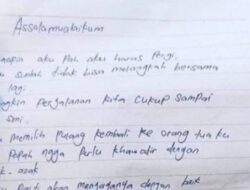 Assalamualaikum
aku Pah aku harus Pergi.
sudah tidak bisa melangkah bersama
lagi.
Perjalanan kita cukup sampai
sini.
memilih pulang kembali ke orang tua ku
Papah ngga Perlu khawatir dengan
anak
Pasti akan menjaganya dengan baik